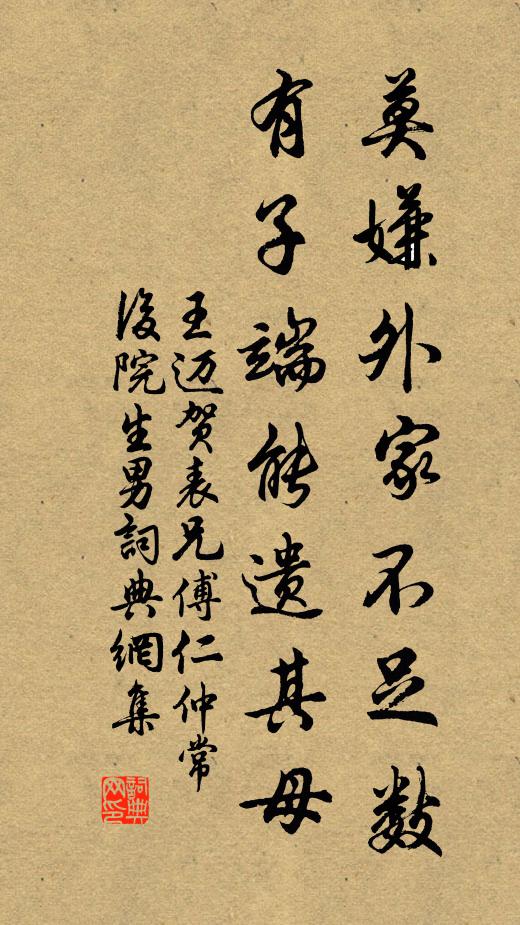 莫嫌外家不足数
有子端能遗其母
王迈贺表兄傅仁仲常
後院生男詞典網集
詞典网印